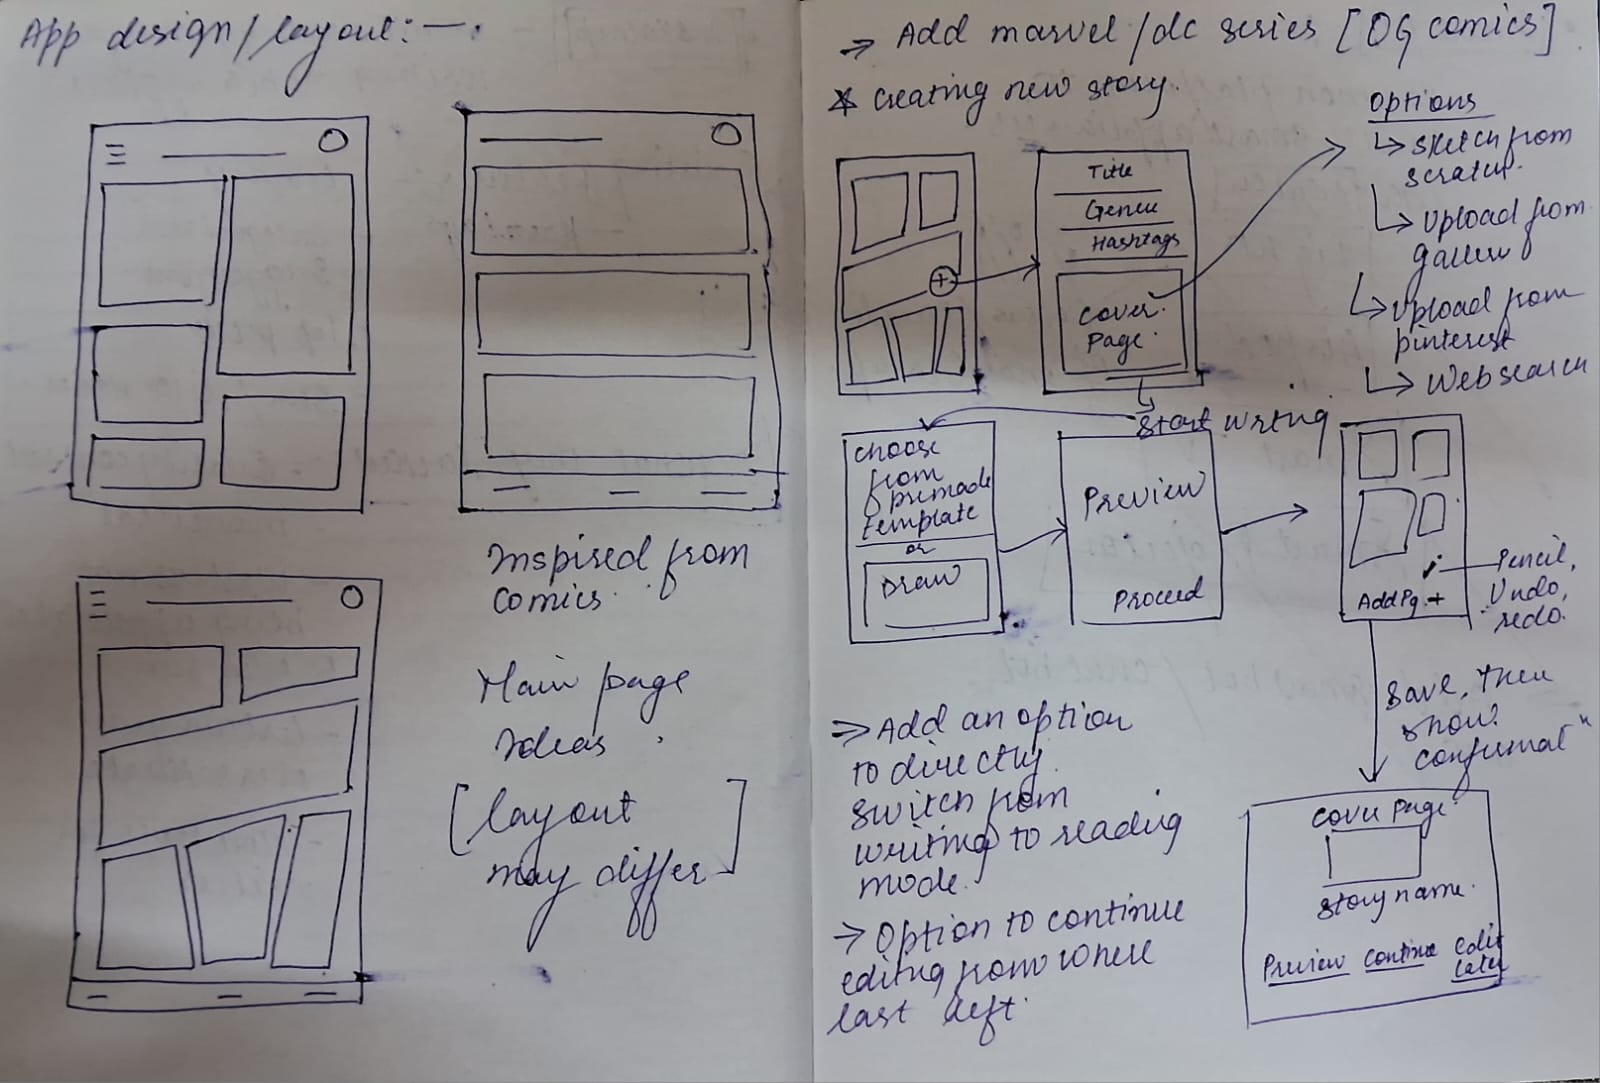 App design/layout:—.
Inspired from
comics.
Main page
Ideas.
[layout
may differ]
→ Add marvel/dc series [OG comics]
* creating new story.
Title
Genre
Hashtags
Cover
Page.
Options
↳ Sketch from
scratch.
↳ Upload from
gallery
↳ Upload from
pinterest
↳ Web search
↳ Start writing
choose
from
premade
template
or
Draw
Preview
Proceed
Add Pg. +
Pencil,
Undo,
redo.
Save, then
show
confirmatⁿ
Cover page.
Story name.
Preview continue edit
later
⇒ Add an option
to directly
switch from
writing to reading
mode.
→ Option to continue
editing from where
last left.